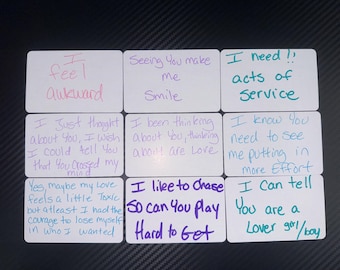 I
feel
awkward
Seeing You make
me
Smile
I need !!
acts of
Service
I Just thought
about You, I wish
I could tell You
that You crossed my
mind
I been thinking
about You, thinking
about are Love
I know You
need to see
me putting in
more Effort
Yes maybe my love
feels a little Toxic
but atleast I had the
courage to lose myself
in who I wanted
I like to Chase
SO can You play
Hard to Get
I Can tell
You are a
Lover girl/boy